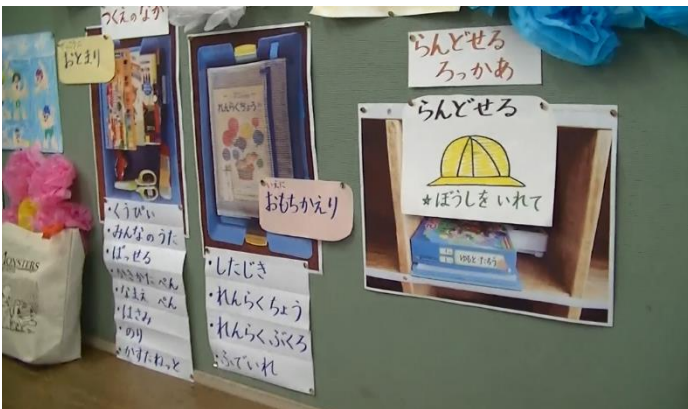 つくえのなか
おとまり
・くうぴい
・みんなのうた
・ぱっせる
・かきかた ぺん
・なまえ ぺん
・はさみ
・のり
・かすたねっと
れんらくちょう
いえに
おもちかえり
・したじき
・れんらくちょう
・れんらくぶくろ
・ふでいれ
らんどせる
ろっかあ
らんどせる
★ぼうしを いれて
MONSTERS